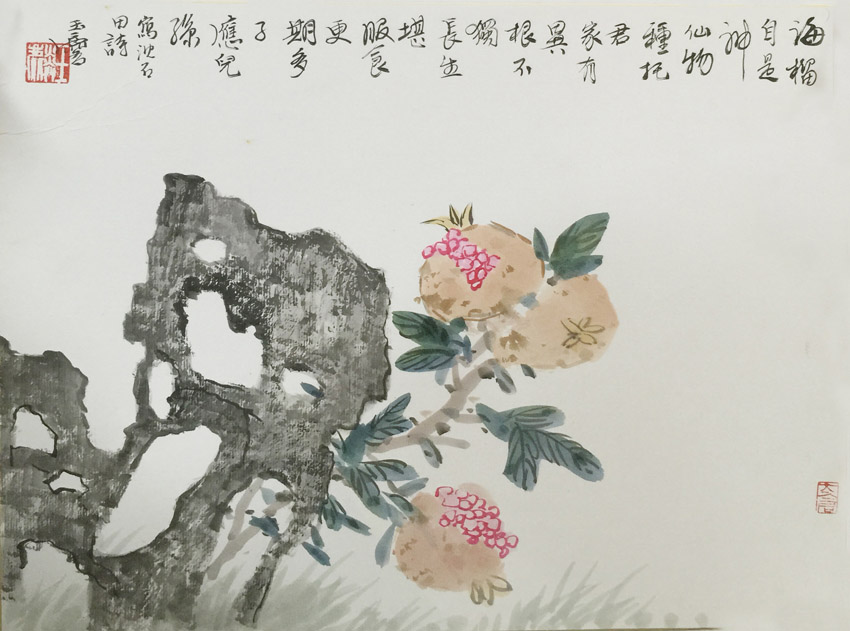 海榴
自是
神
仙物
種托
君
家有
異
根不
獨
長生
堪
服食
更
期多
子
應兒
孫
寫沈石
田詩
玉